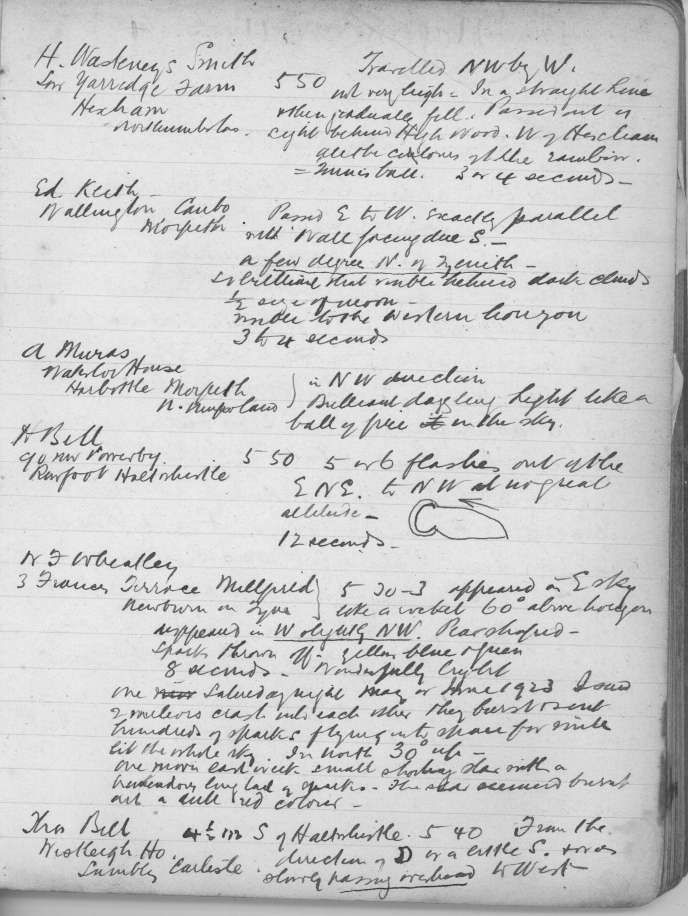 H. Wastneys Smith
Low Yarridge Farm 5 50 Travelled NW by W.
Hexham not very high = In a straight line
Northumberland. then gradually fell. Passed out of
sight behind High Wood. W of Hexham
all the colours of the rainbow.
= Tennis ball. 3 or 4 seconds -
Ed Keith -
Wallington Cambo Passed E to W. exactly parallel
Morpeth. with Wall facing due S. -
a few degree N. of Zenith -
so brilliant that visible behind dark clouds
½ size of moon -
visible to the western horizon
3 to 4 seconds
A Muras
Waterloo House
Harbottle Morpeth in NW direction
Brilliant dazzling light like a
ball of fire in the sky.
H Bell
c/o Mr
Haltwhistle 5 50 5 or 6 flashes out of the
E NE. to NW at no great
altitude -
12 seconds -
N F Wheatley
3 Frances Terrace Millfield 5 30-3 appeared in E sky
Newburn on Tyne like a rocket 60° above horizon
disappeared in W slightly NW. Pear shaped -
sparks thrown off - yellow blue & green
8 seconds - Wonderfully bright
one Saturday night May or June 1923 I saw
2 meteors crash into each other they burst & sent
hundreds of sparks flying into space for miles
lit the whole sky. In north 30° up -
one morn last week small shooting star with a
tremendous long tail of sparks - the star seemed burnt
out a dull red colour -
Thos Bell 4½ m S of Haltwhistle. 5 40 From the
Westleigh Ho. direction of D or a little S.
Cumbly Carlisle. slowly passing overhead to West